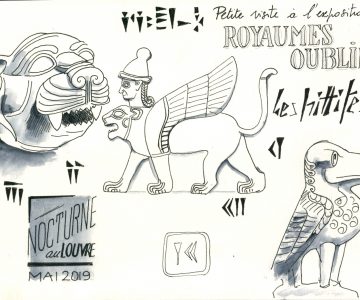 Petite visite à l'expositi
ROYAUMES
OUBLI
Les hittites
NOCTURNE
au LOUVRE
MAI 2019